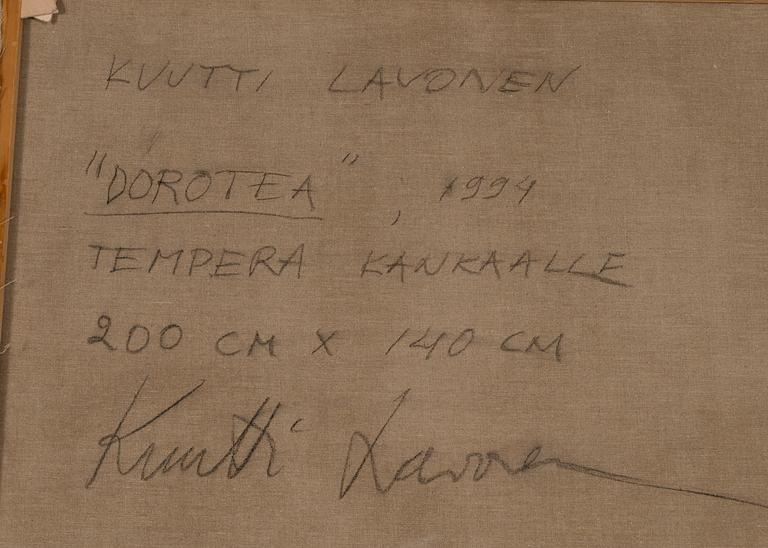 KUUTTI LAVONEN
"DOROTEA", 1994
TEMPERA KANKAALLE
200 CM X 140 CM
Kuutti Lavonen